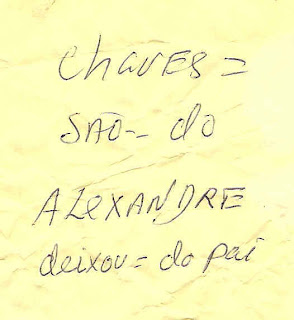 chavES =
SÃO-- do
ALEXANDRE
deixou = do pai